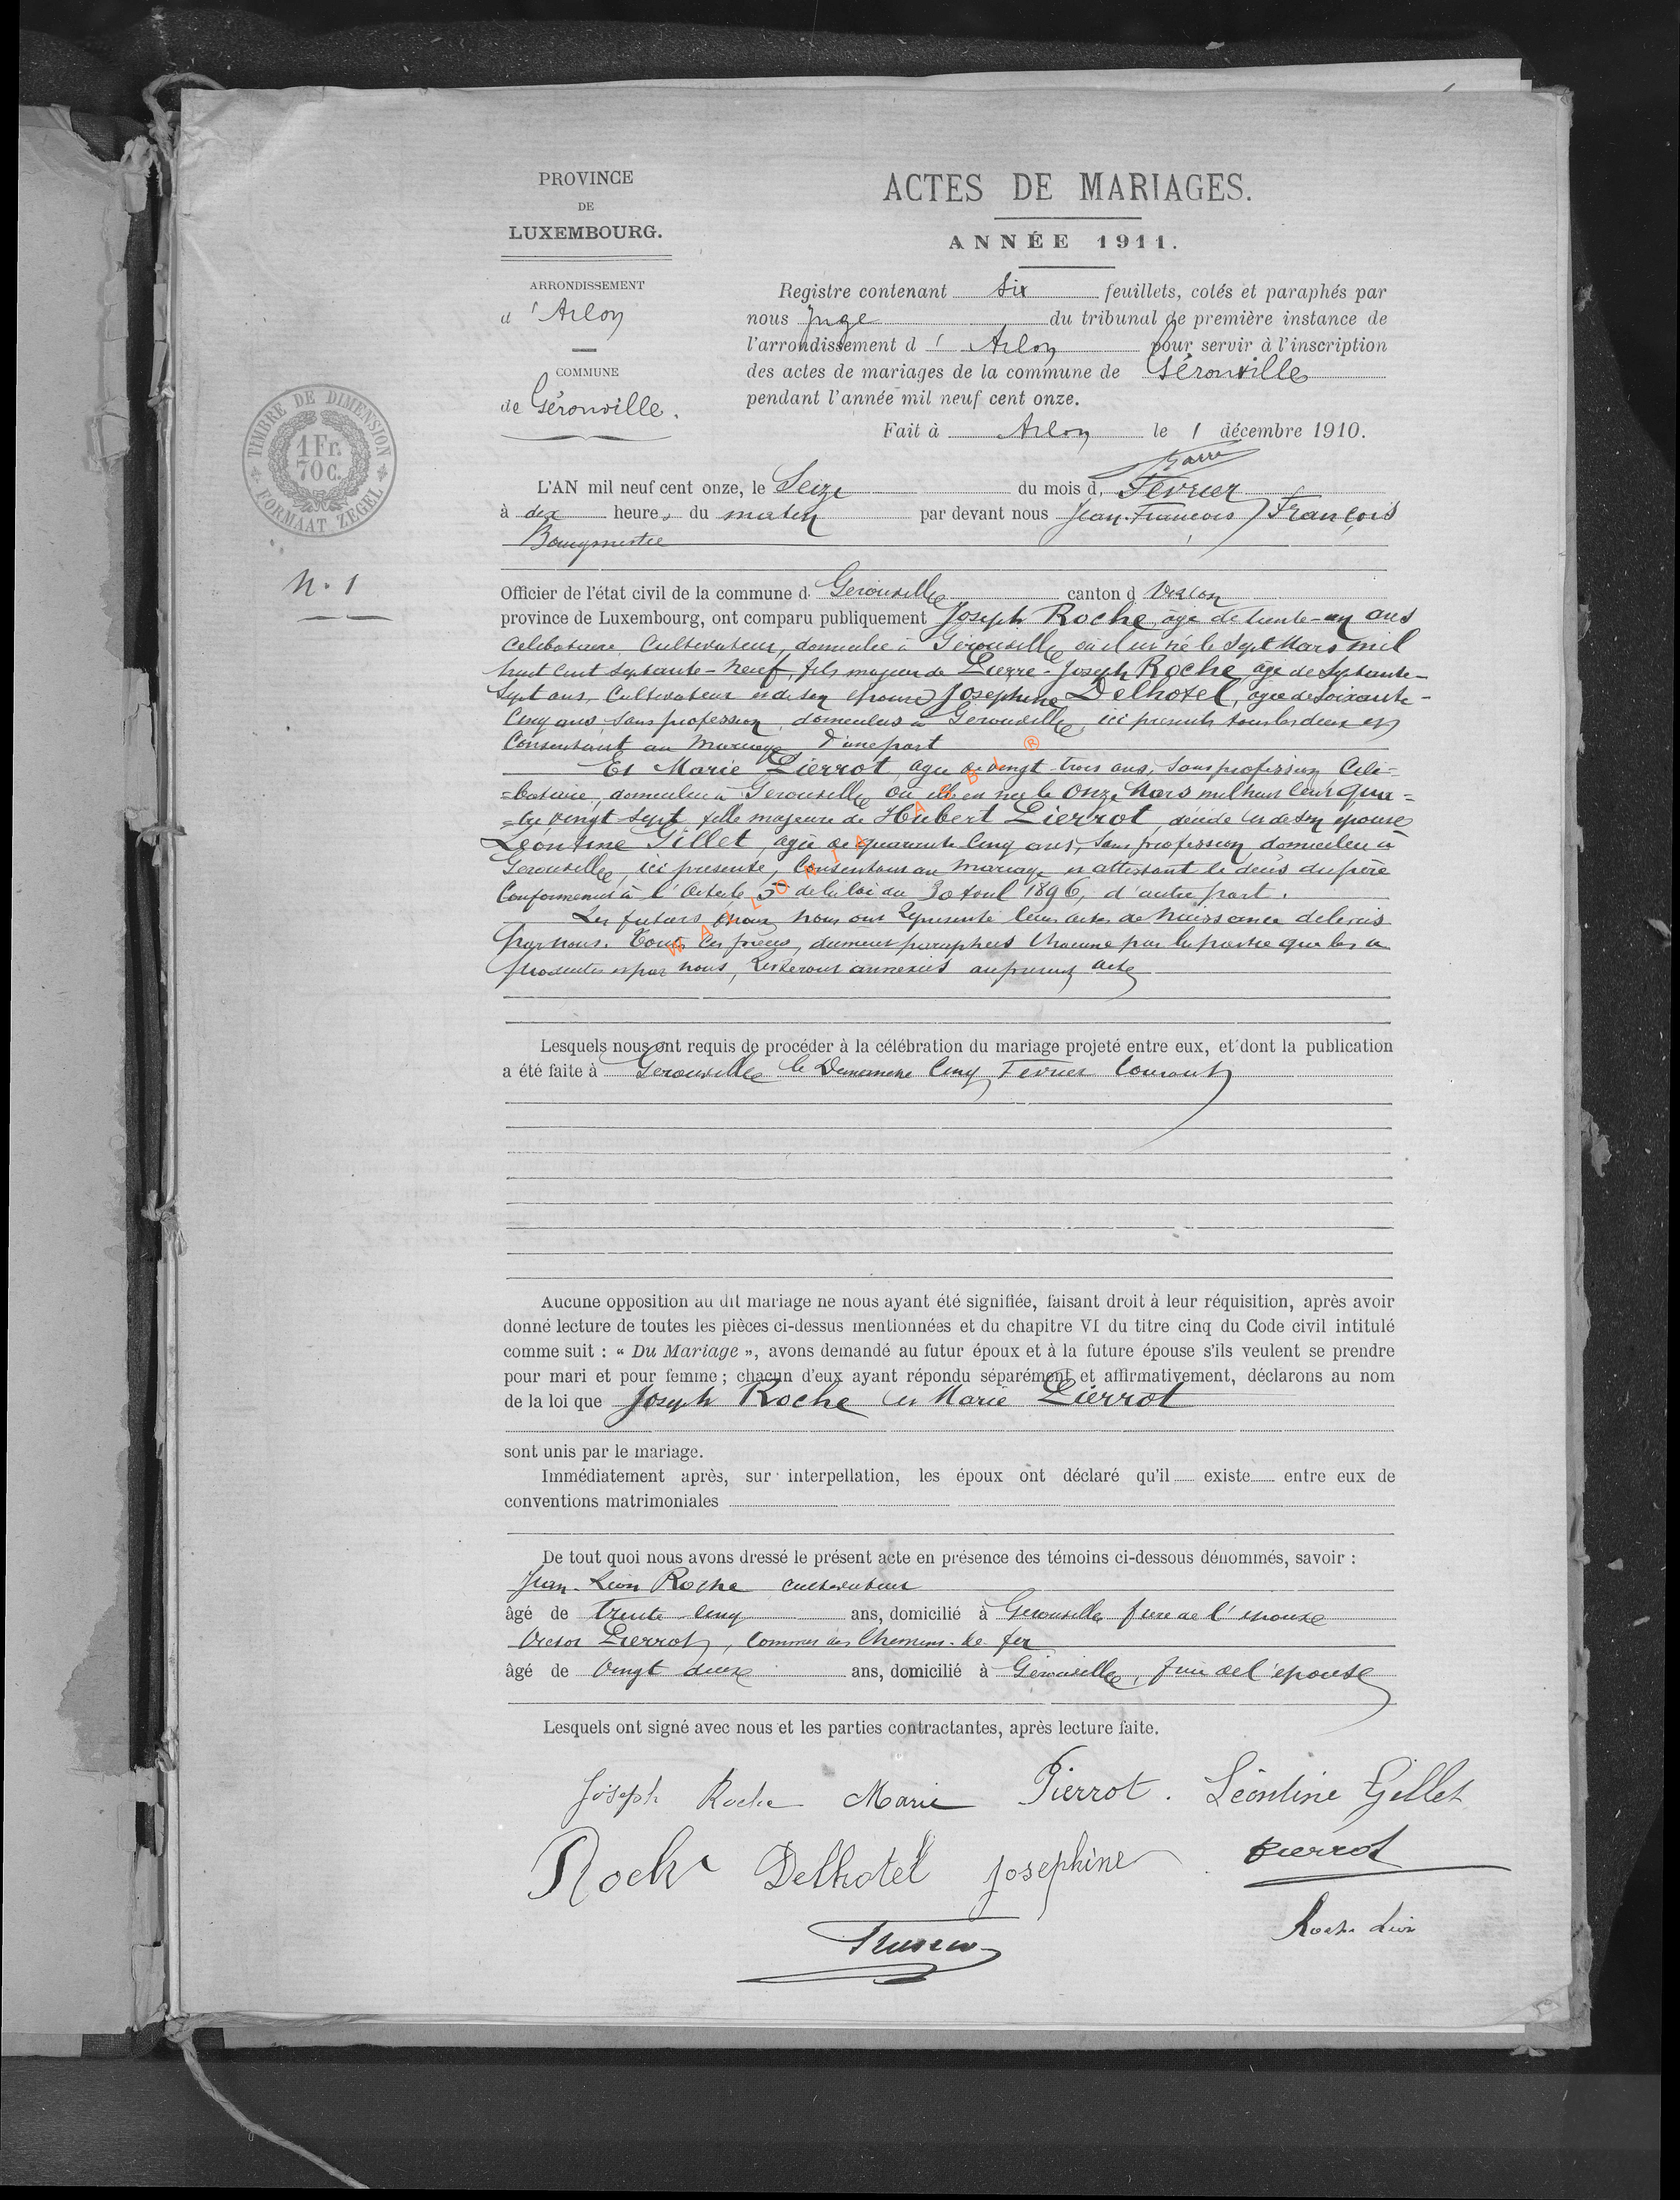 PROVINCE
DE
LUXEMBOURG.
ARRONDISSEMENT
d'Arlon
COMMUNE
de Gérouville.
TIMBRE DE DIMENSION
1 Fr.
70 c.
FORMAAT ZEGEL
N. 1
ACTES DE MARIAGES.
ANNÉE 1911.
Registre contenant six feuillets, cotés et paraphés par
nous Juge du tribunal de première instance de
l'arrondissement d'Arlon pour servir à l'inscription
des actes de mariages de la commune de Gérouville
pendant l'année mil neuf cent onze.
Fait à Arlon le 1 décembre 1910.
L'AN mil neuf cent onze, le Seize du mois d. Février
à dix heures du matin par devant nous Jean-François François
Bourgmestre
Officier de l'état civil de la commune d. Gérouville canton d Virton
province de Luxembourg, ont comparu publiquement Joseph Roche, âgé de trente-un ans
célibataire, cultivateur, domicilié à Gérouville où il est né le sept Mars mil
huit cent septante-neuf, fils majeur de Pierre-Joseph Roche, âgé de septante-
sept ans, cultivateur et de son épouse Joséphine Delhotel, âgée de soixante-
cinq ans, sans profession, domiciliés à Gérouville, ici présents tous les deux et
consentant au mariage, d'une part
Et Marie Pierrot, âgée de vingt-trois ans, sans profession, céli-
=bataire, domiciliée à Gérouville, où elle est née le onze Mars mil huit cent qua=
=tre vingt sept, fille majeure de Hubert Pierrot, décédé et de son épouse
Léontine Gillet, âgée de quarante cinq ans, sans profession, domiciliée à
Gérouville, ici présente, consentant au mariage et attestant le décès du père
conformément à l'article 5 de la loi du 30 Avril 1896, d'autre part.
Les futurs époux nous ont représenté leurs actes de naissance délivrés
par nous. Toutes ces pièces, dûment paraphées chacune par la partie qui les a
produites et par nous, resteront annexées au présent acte
Lesquels nous ont requis de procéder à la célébration du mariage projeté entre eux, et dont la publication
a été faite à Gérouville le Dimanche cinq Février courant
Aucune opposition au dit mariage ne nous ayant été signifiée, faisant droit à leur réquisition, après avoir
donné lecture de toutes les pièces ci-dessus mentionnées et du chapitre VI du titre cinq du Code civil intitulé
comme suit : « Du Mariage », avons demandé au futur époux et à la future épouse s'ils veulent se prendre
pour mari et pour femme ; chacun d'eux ayant répondu séparément et affirmativement, déclarons au nom
de la loi que Joseph Roche et Marie Pierrot
sont unis par le mariage.
Immédiatement après, sur interpellation, les époux ont déclaré qu'il existe entre eux de
conventions matrimoniales
De tout quoi nous avons dressé le présent acte en présence des témoins ci-dessous dénommés, savoir :
Jean-Léon Roche cultivateur
âgé de trente-cinq ans, domicilié à Gérouville frère de l'époux
Victor Pierrot, commis des chemins de fer
âgé de vingt deux ans, domicilié à Gérouville, frère de l'épouse
Lesquels ont signé avec nous et les parties contractantes, après lecture faite.
Joseph Roche Marie Pierrot. Léontine Gillet
Roche Delhotel Josephine Pierrot
Roche Léon
WALLONIA ARBI ®